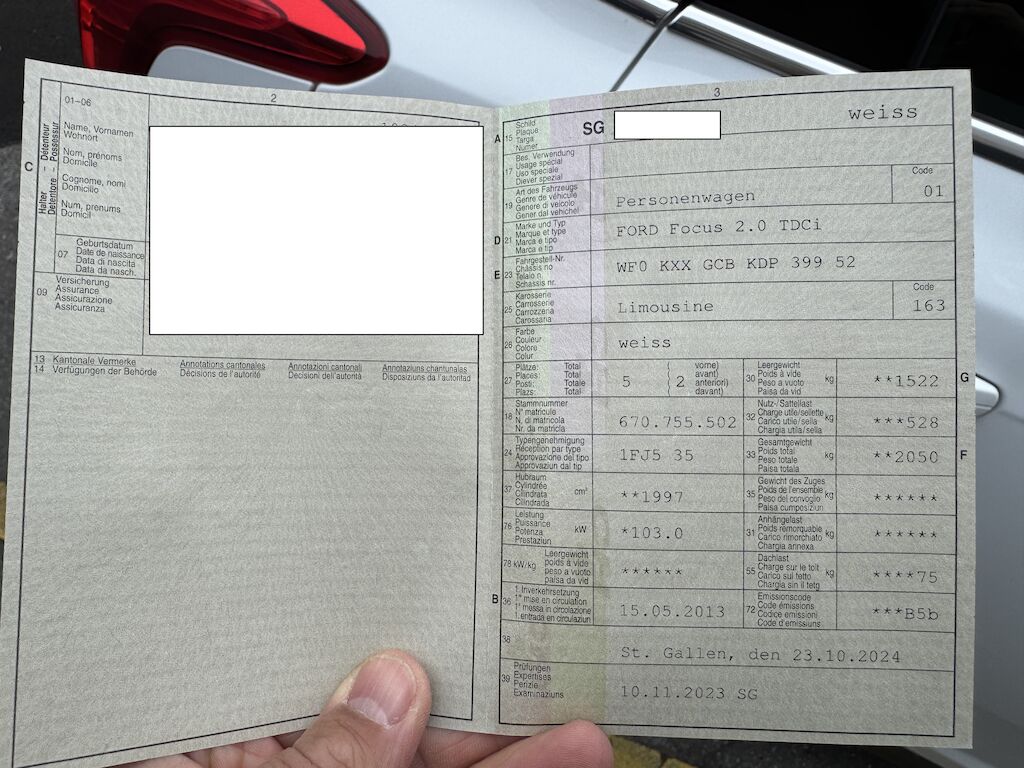 2
01-06
C
Halter - Détenteur
Detentore - Possessur
Name, Vornamen
Wohnort
Nom, prénoms
Domicile
Cognome, nomi
Domicilio
Num, prenums
Domicil
07
Geburtsdatum
Date de naissance
Data di nascita
Data da nasch.
09
Versicherung
Assurance
Assicurazione
Assicuranza
13 Kantonale Vermerke
14 Verfügungen der Behörde
Annotations cantonales
Décisions de l'autorité
Annotazioni cantonali
Decisioni dell'autorità
Annotaziuns chantunalas
Disposiziuns da l'autoritad
3
A 15
Schild
Plaque
Targa
Numer
SG
weiss
17
Bes. Verwendung
Usage spécial
Uso speciale
Diever spezial
19
Art des Fahrzeugs
Genre de véhicule
Genere di veicolo
Gener dal vehichel
Personenwagen
Code
01
D 21
Marke und Typ
Marque et type
Marca e tipo
Marca e tip
FORD Focus 2.0 TDCi
E 23
Fahrgestell-Nr.
Châssis no
Telaio n.
Schassis nr.
WF0 KXX GCB KDP 399 52
25
Karosserie
Carrosserie
Carrozzeria
Carossaria
Limousine
Code
163
26
Farbe
Couleur
Colore
Colur
weiss
27
Plätze: Total
Places: Total
Posti: Totale
Plazs: Total
5 ( 2
vorne)
avant)
anteriori)
davant)
30
Leergewicht
Poids à vide
Peso a vuoto
Paisa da vid
kg
**1522
G
18
Stammnummer
N° matricule
N. di matricola
Nr. da matricla
670.755.502
32
Nutz-/Sattellast
Charge utile/sellette
Carico utile/sella
Chargia utila/sella
kg
***528
24
Typengenehmigung
Réception par type
Approvazione del tipo
Approvaziun dal tip
1FJ5 35
33
Gesamtgewicht
Poids total
Peso totale
Paisa totala
kg
**2050
F
37
Hubraum
Cylindrée
Cilindrata
Cilindrada
cm³
**1997
35
Gewicht des Zuges
Poids de l'ensemble
Peso del convoglio
Paisa cumposiziun
kg
******
76
Leistung
Puissance
Potenza
Prestaziun
kW
*103.0
31
Anhängelast
Poids remorquable
Carico rimorchiato
Chargia annexa
kg
******
78 kW/kg
Leergewicht
poids à vide
peso a vuoto
paisa da vid
******
55
Dachlast
Charge sur le toit
Carico sul tetto
Chargia sin il tetg
kg
****75
B 36
1. Inverkehrsetzung
1re mise en circulation
1a messa in circolazione
1. entrada en circulaziun
15.05.2013
72
Emissionscode
Code émissions
Codice emissioni
Code d'emissiuns
***B5b
38
St. Gallen, den 23.10.2024
39
Prüfungen
Expertises
Perizie
Examinaziuns
10.11.2023 SG